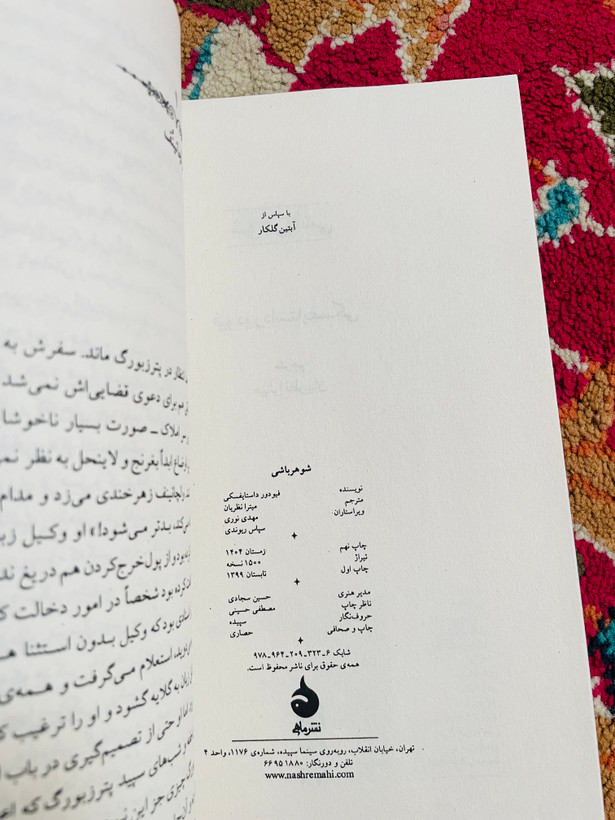 با سپاس از
آبتین گلکار
شوهرباشی
نویسنده فیودور داستایفسکی
مترجم میترا نظریان
ویراستاران مهدی نوری
سپاس ریوندی
چاپ نهم زمستان ۱۴۰۴
تیراژ ۱۵۰۰ نسخه
چاپ اول تابستان ۱۳۹۹
مدیر هنری حسین سجادی
ناظر چاپ مصطفی حسینی
حروف‌نگار سپیده
چاپ و صحافی حصاری
شابک ۶-۳۲۳-۲۰۹-۹۶۴-۹۷۸
همه‌ی حقوق برای ناشر محفوظ است.
نشرماهی
تهران، خیابان انقلاب، روبه‌روی سینما سپیده، شماره‌ی ۱۱۷۶، واحد ۴
تلفن و دورنگار: ۶۶۹۵۱۸۸۰
www.nashremahi.com
انتظار در پترزبورگ ماند. سفرش به
هم برای دعوی قضایی‌اش نمی‌شد
املاک ـ صورت بسیار ناخوشا
ابداً بغرنج و لاینحل به نظر نمـ
زهرخندی می‌زد و مدام
می‌کند، بدتر می‌شود!» او وکیل زبـ
بود و از پول خرج‌کردن هم دریغ ند
کرده بود شخصاً در امور دخالت کـ
بود که وکیل بدون استثنا هـ
استعلام می‌گرفت و همه‌ی
زبان به گلایه گشود و او را ترغیب کـ
اما او حتی از تصمیم‌گیری در باب
و شب‌های سپید پترزبورگ که
چیزی جز این